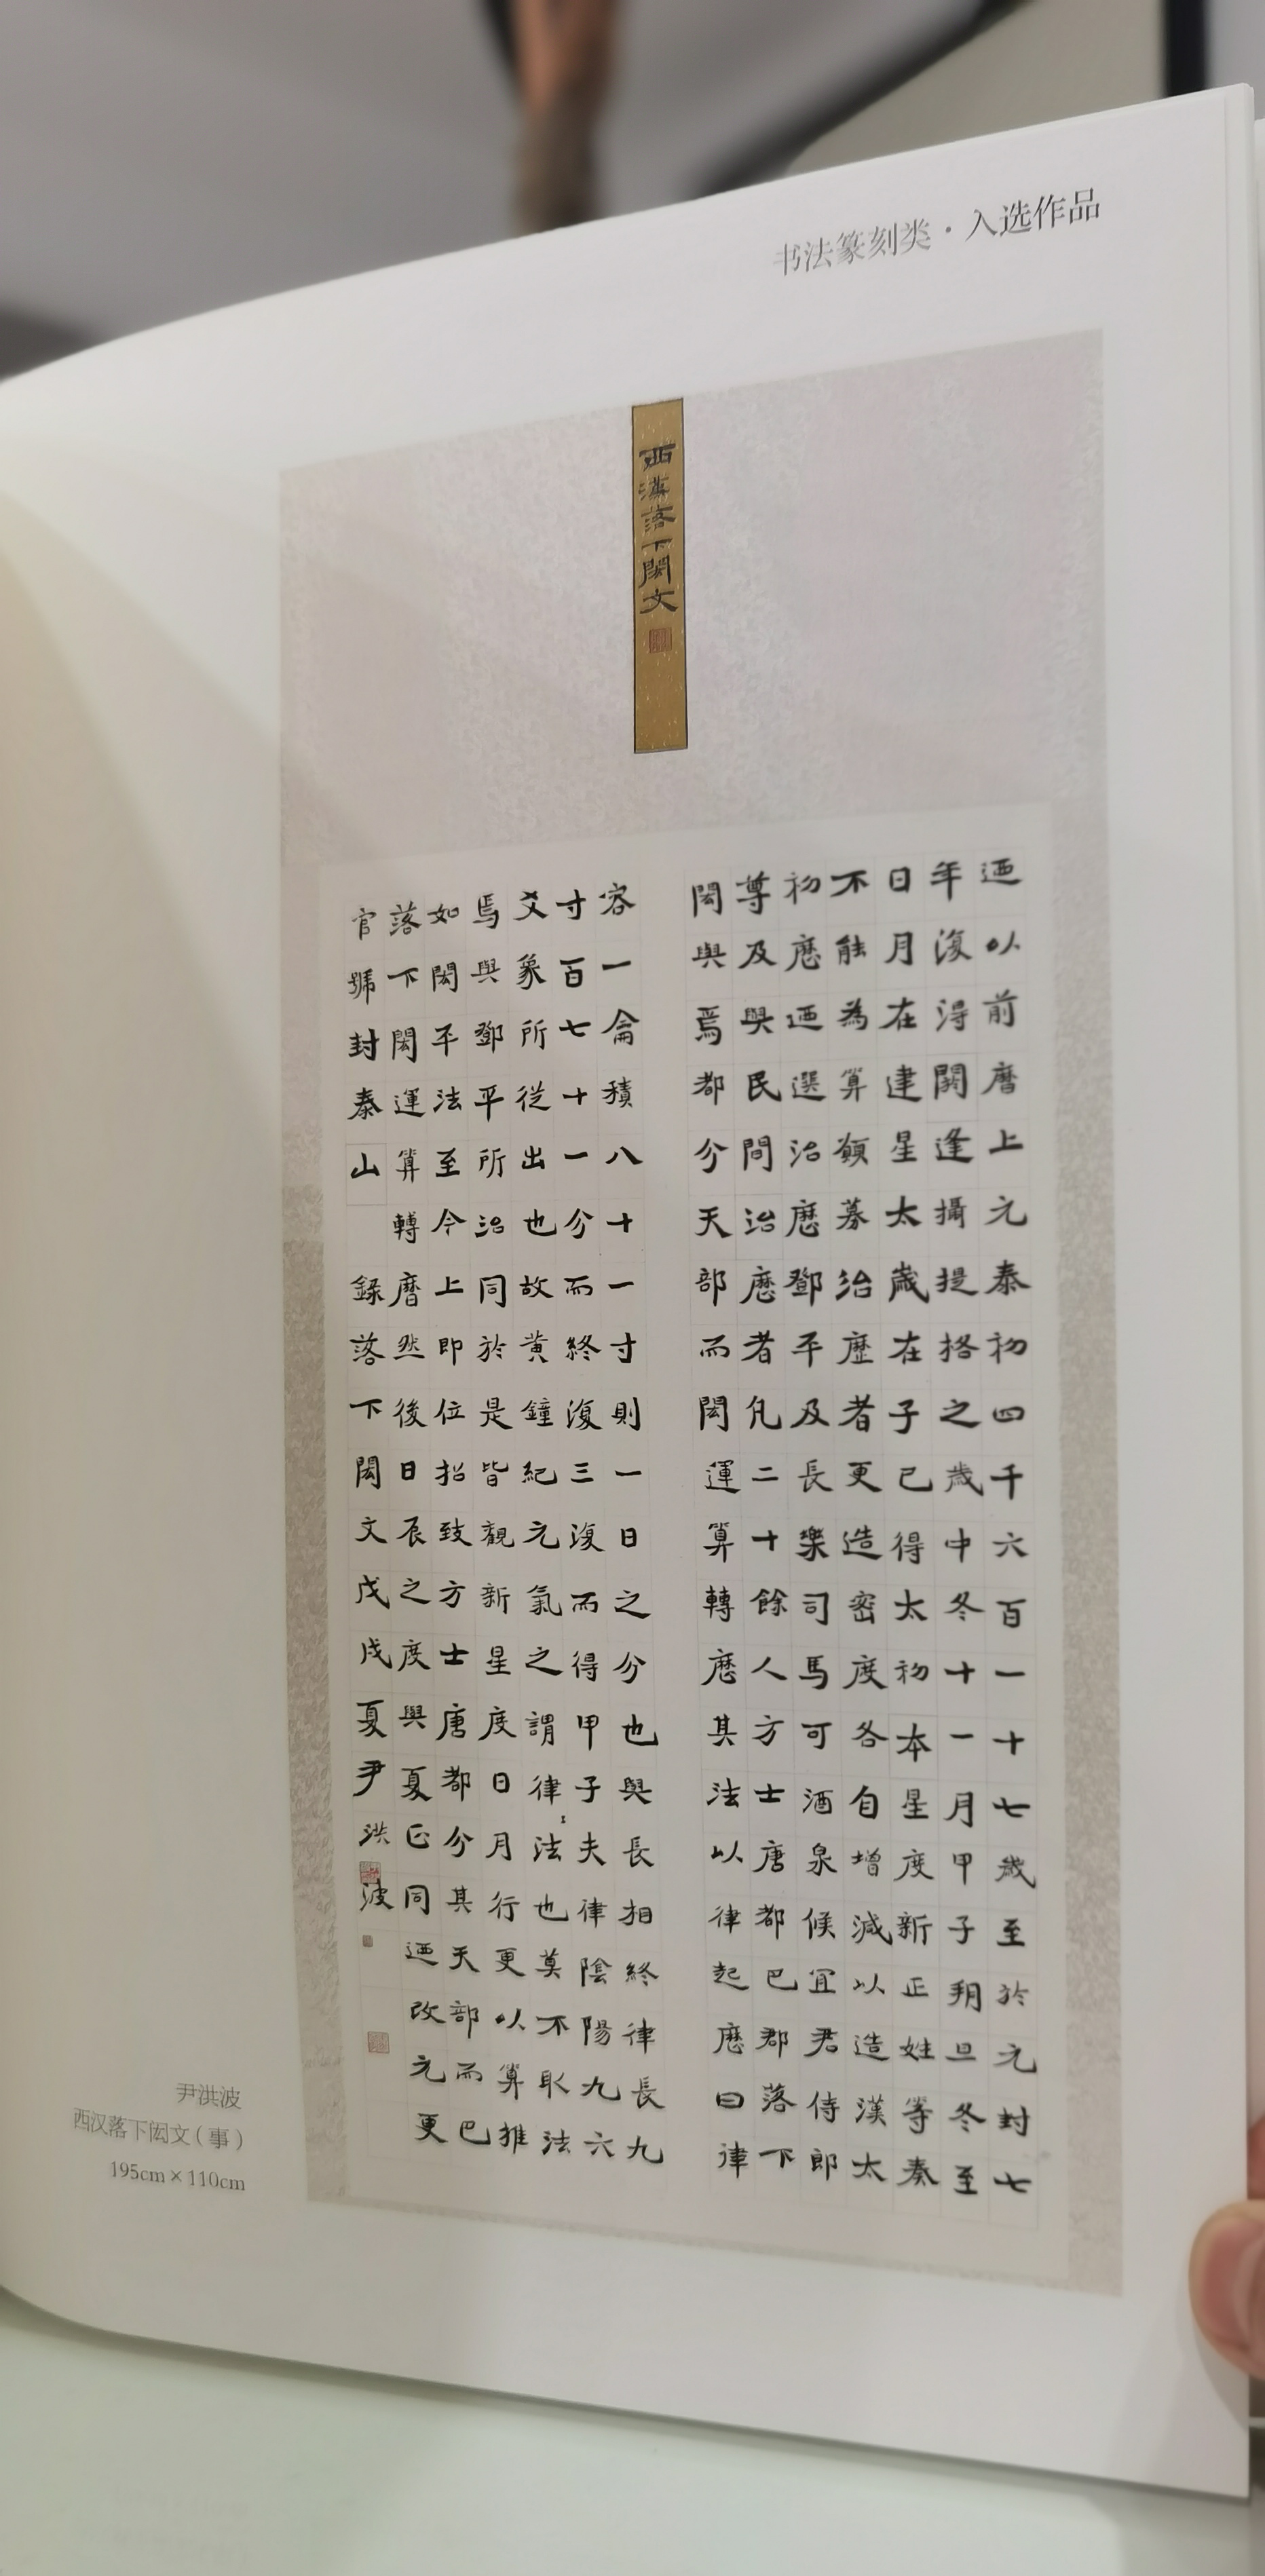 书法篆刻类·入选作品
西漢落下閎文
迺以前曆上元泰初四千六百一十七歲至於元封七
年復得閼逢攝提格之歲中冬十一月甲子朔旦冬至
日月在建星太歲在子已得太初本星度新正姓等奏
不能為算願募治歷者更造密度各自增減以造漢太
初曆迺選治曆鄧平及長樂司馬可酒泉候宜君侍郎
尊及與民間治曆者凡二十餘人方士唐都巴郡落下
閎與焉都分天部而閎運算轉曆其法以律起曆曰律
容一龠積八十一寸則一日之分也與長相終律長九
寸百七十一分而終復三復而得甲子夫律陰陽九六
爻象所從出也故黃鐘紀元氣之謂律法也莫不取法
焉與鄧平所治同於是皆觀新星度日月行更以算推
如閎平法至今上即位招致方士唐都分其天部而巴
落下閎運算轉曆然後日辰之度與夏正同迺改元更
官號封泰山 錄落下閎文戊戌夏尹洪波
尹洪波
西汉落下闳文（事）
195cm×110cm